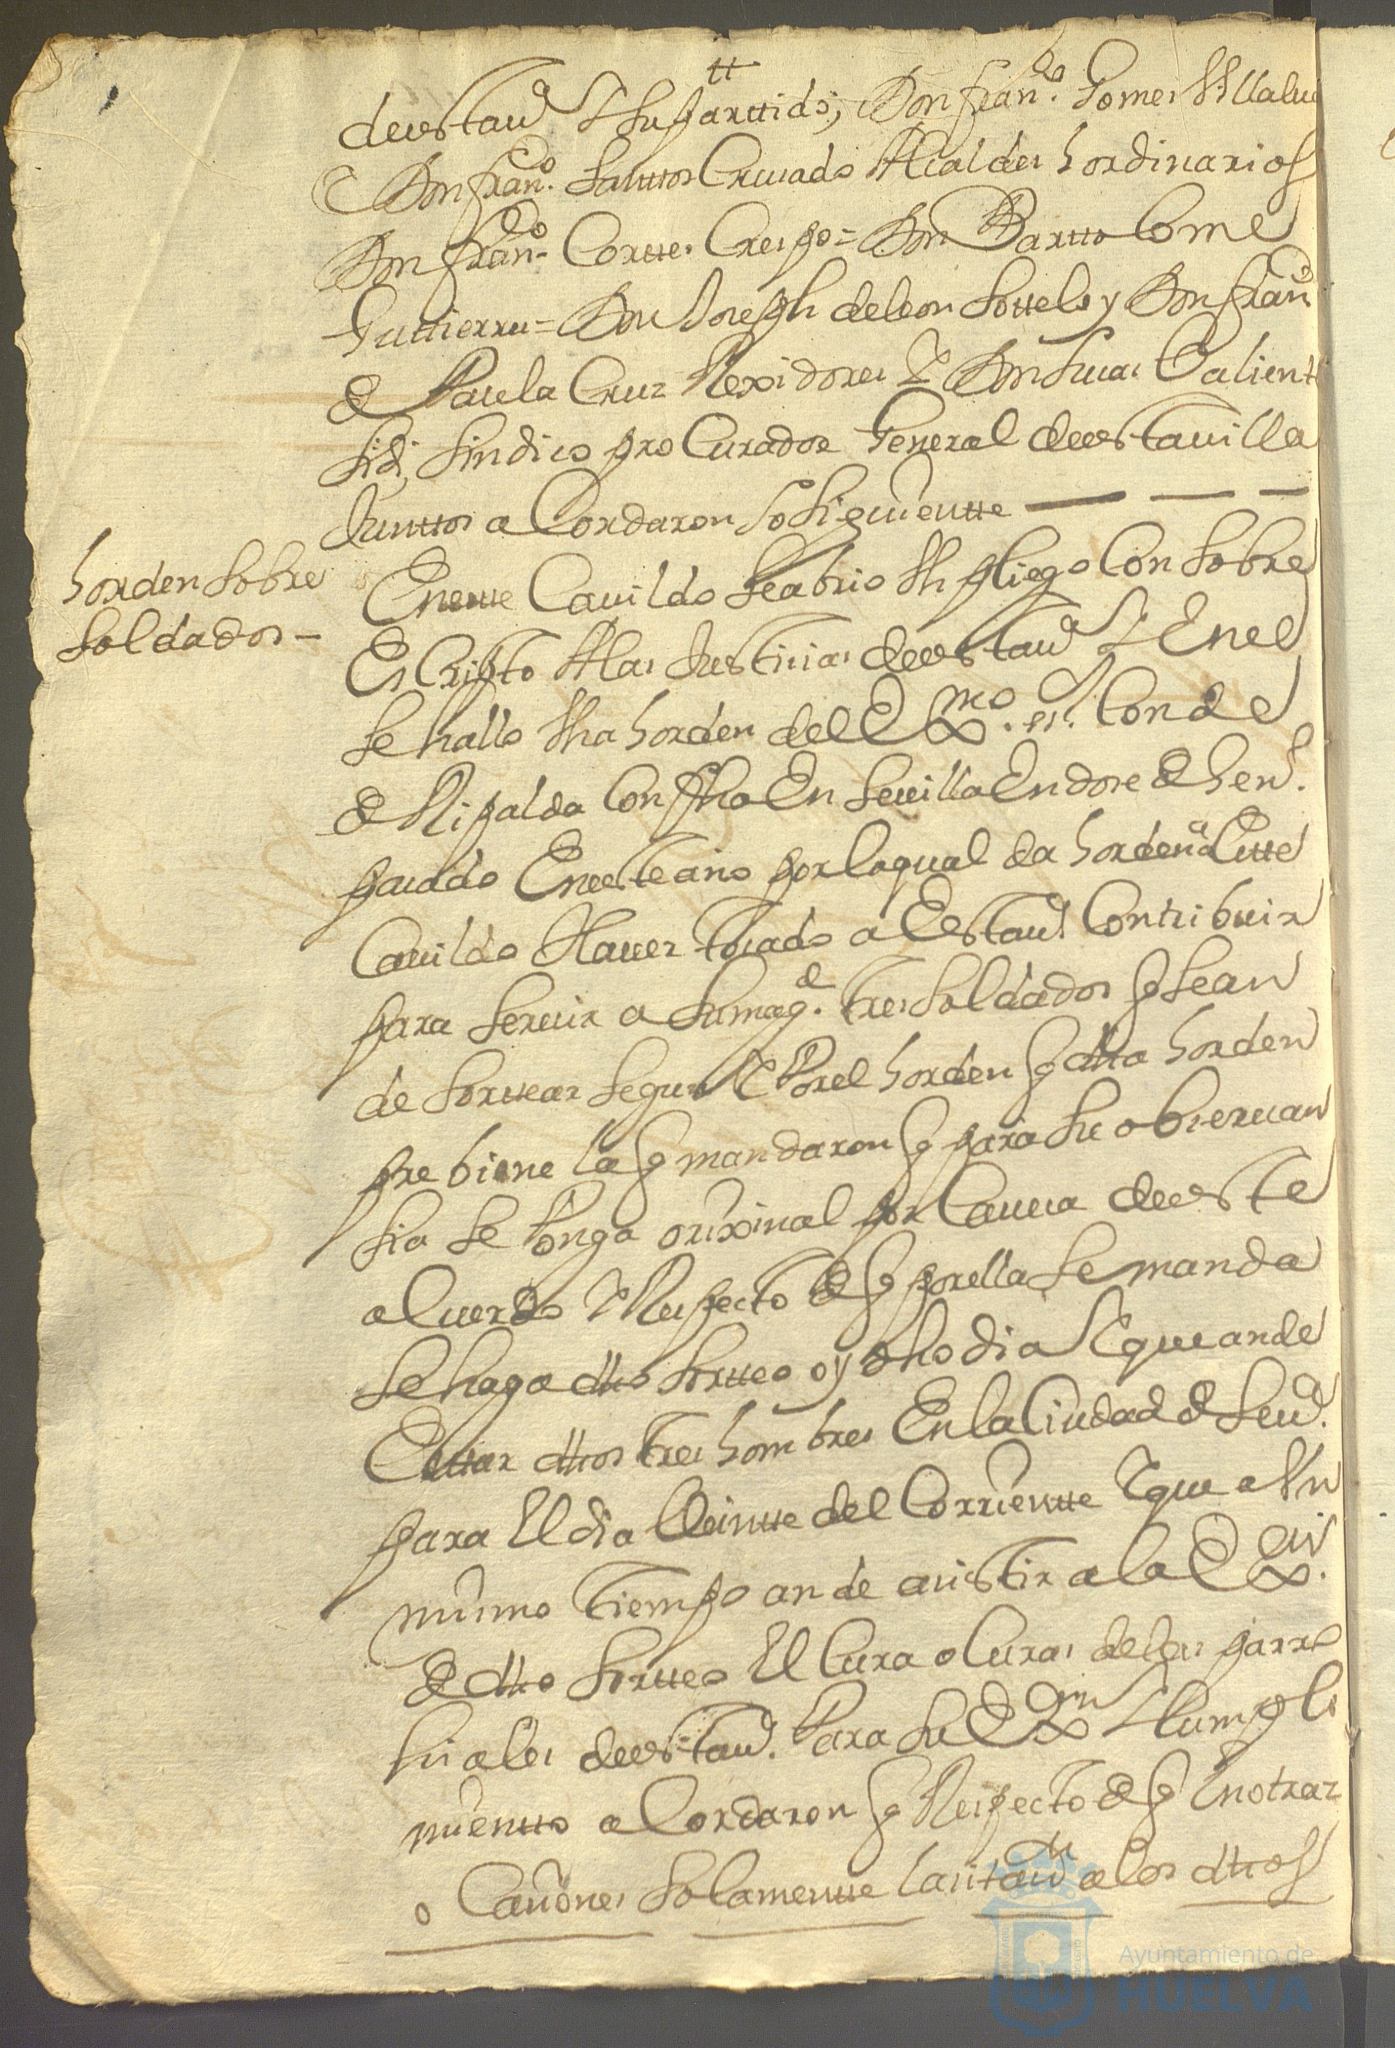 deesta Vª Y su parttido; Don franco Gomez Villalua
Don franco Santtos Cruzado Alcaldes hordinarios
Don franco Corttes Crespo = Don Barttolome
Guttierres = Don Joseph deleon Sottelo y Don franco
de Paula Cruz Rexidores Y Don Lucas Calientte
sidi, sindico pro Curador General deestauilla
Junttos a Cordaron lo siguientte
horden sobre
soldados -
Eneste Cauildo se abrio Un pliego Con sobre
Escripto A las Justicias deesta Vª Y Enel
se hallo Una horden del Exmo. sr. Conde
de Ripalda Con fha En Seuilla En dose de hen.
pasado Eneste ano por la qual da horden a Este
Cauildo Hauer tocado a Esta Vª Contribuir
para seruir a su magd. tres soldados q sean
de sorttear segun Y Por el horden q dtta horden
prebiene la q mandaron q para su obseruan
sia se Ponga orixinal por Caueza deeste
aCuerdo Y Respecto de q por ella se manda
se haga dtto sortteo oy dho dia Y que an de
Esttar dttos tres hombres En la Ciudad de Seuª.
para El dia Veintte del Corrientte Y que a Un
mismo tiempo an de asistir a la Exon.
de dtto sortteo El Cura o Curas de las parro
quiales deesta Vª. Para su Exon Y Cumpli
mientto aCordaron q Respecto de q En otras
o Casiones solamentte la sitan a los dttos
Ayuntamiento de
HUELVA